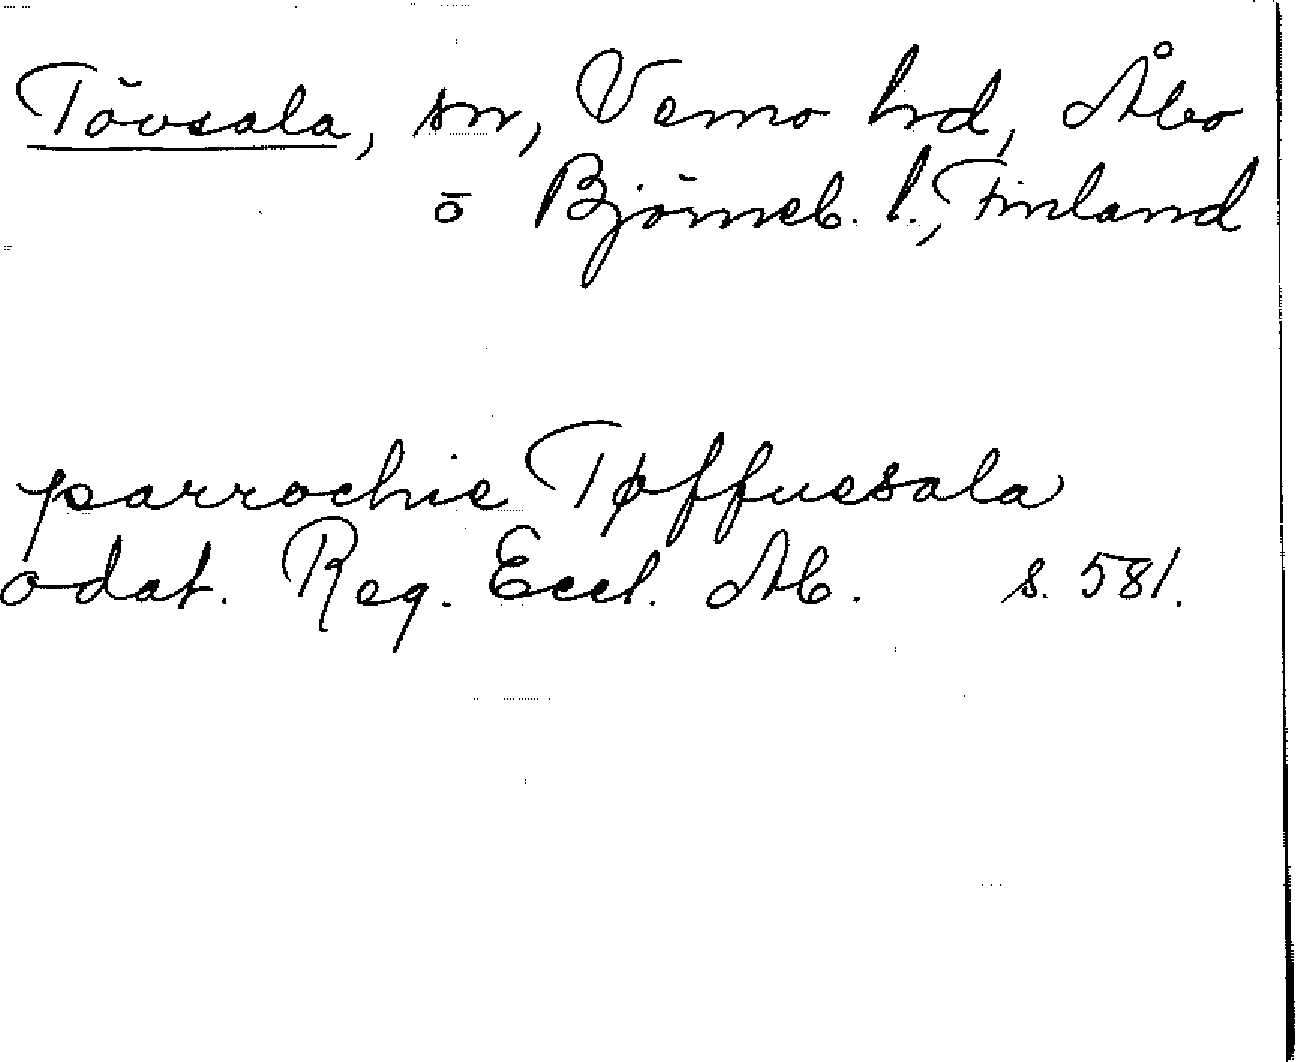 Tövsala, sn, Vemo hd, Åbo
o Björneb. l., Finland
parrochie Tøffuesala
odat. Reg. Eccl. Ab. s. 581.